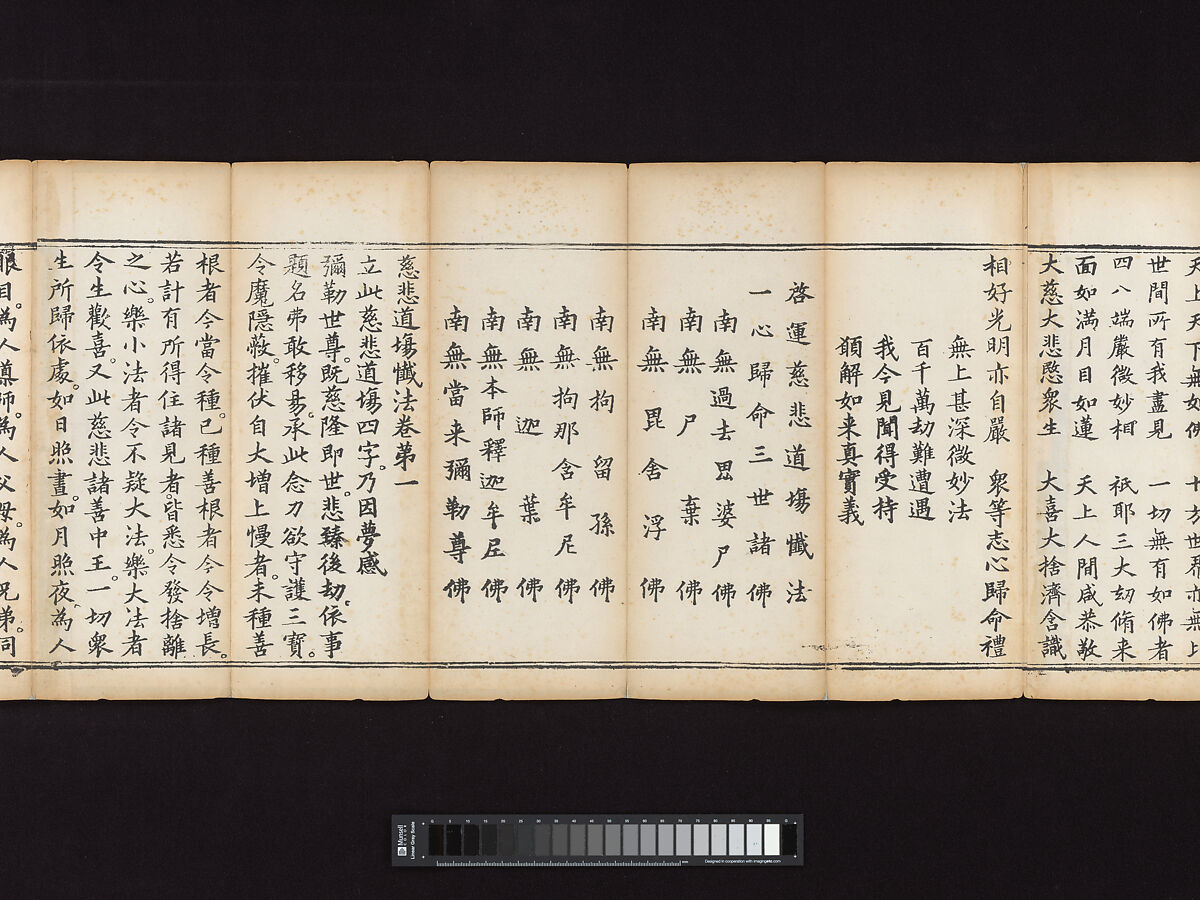 天上天下無如佛　十方世界亦無比
世間所有我盡見　一切無有如佛者
四八端嚴微妙相　祇耶三大劫脩来
面如滿月目如蓮　天上人間咸恭敬
大慈大悲愍衆生　大喜大捨濟含識
相好光明亦自嚴　衆等志心歸命禮
無上甚深微妙法
百千萬劫難遭遇
我今見聞得受持
願解如来真實義
啓運慈悲道場懺法
一心歸命三世諸佛
南無過去毘婆尸佛
南無尸棄佛
南無毘舍浮佛
南無拘留孫佛
南無拘那含牟尼佛
南無迦葉佛
南無本師釋迦牟尼佛
南無當来彌勒尊佛
慈悲道場懺法卷第一
立此慈悲道場四字。乃因夢感
彌勒世尊。既慈隆即世。悲臻後劫。依事
題名弗敢移易。承此念力欲守護三寶。
令魔隱蔽。摧伏自大增上慢者。未種善
根者今當令種。已種善根者今令增長。
若計有所得住諸見者皆悉令發捨離
之心。樂小法者令不疑大法。樂大法者
令生歡喜。又此慈悲諸善中王。一切衆
生所歸依處。如日照晝。如月照夜。為人
眼目。為人導師。為人父母。為人兄弟。同
Munsell
COLOR
Linear Gray Scale
Designed in cooperation with imagingetc.com